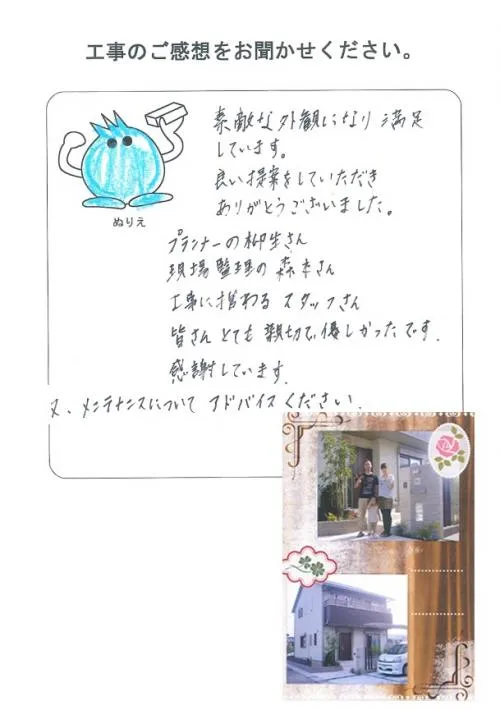 工事のご感想をお聞かせください。
素敵な外観になり満足
しています。
良い提案をしていただき
ありがとうございました。
ぬりえ
プランナーの柳生さん
現場監理の森本さん
工事に携わるスタッフさん
皆さんとても親切で優しかったです.
感謝しています.
又、メンテナンスについてアドバイスください.